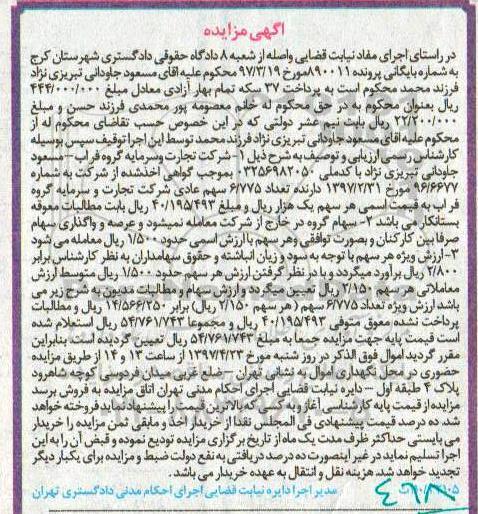 آگهی مزایده
در راستای اجرای مفاد نیابت قضایی واصله از شعبه ۸ دادگاه حقوقی دادگستری شهرستان کرج
به شماره بایگانی پرونده ۸۹۰۰۱۱ مورخ ۹۷/۳/۱۹ محکوم علیه اقای مسعود جاودانی تبریزی نژاد
فرزند محمد محکوم است به پرداخت ۳۷ سکه تمام بهار آزادی معادل مبلغ ۴۴۴/۰۰۰/۰۰۰
ریال بعنوان محکوم به در حق محکوم له خانم معصومه پور محمدی فرزند حسن و مبلغ
۲۲/۲۰۰/۰۰۰ ریال بابت نیم عشر دولتی که در این خصوص حسب تقاضای محکوم له از
محکوم علیه آقای مسعود جاودانی تبریزی نژاد فرزند محمد توسط این اجرا توقیف سپس بوسیله
کارشناس رسمی ارزیابی و توصیف به شرح ذیل ۱- شرکت تجارت وسرمایه گروه فراب - مسعود
جاودانی تبریزی نژاد با کدملی ۰۳۲۵۶۹۸۲۰۵۰ بموجب گواهی اخذشده از شرکت به شماره
۹۶/۶۶۷۷ مورخ ۱۳۹۷/۲/۳۱ دارنده تعداد ۶/۷۷۵ سهم عادی شرکت تجارت و سرمایه گروه
فراب به قیمت اسمی هر سهم یک هزار ریال و مبلغ ۴۰/۱۹۵/۴۹۳ ریال بابت مطالبات معوقه
بستانکار می باشد ۲- سهام گروه در خارج از شرکت معامله نمیشود و عرضه و واگذاری سهام
صرفا بین کارکنان و بصورت توافقی وهر سهم با ارزش اسمی حدود ۱/۵۰۰ ریال معامله می شود
۳- ارزش ویژه هر سهم با توجه به سود و زیان انباشته و حقوق سهامداران به نظر کارشناس برابر
۲/۸۰۰ ریال برآورد میگردد و با در نظر گرفتن ارزش هر سهم حدود ۱/۵۰۰ ریال متوسط ارزش
معاملاتی هر سهم ۲/۱۵۰ ریال تعیین میگردد و ارزش سهام و مطالبات مدیون به شرح زیر می
باشد ارزش ویژه تعداد ۶/۷۷۵ سهم (هر سهم ۲/۱۵۰ ریال) برابر ۱۴/۵۶۶/۲۵۰ ریال و مطالبات
پرداخت نشده معوق متوفی ۴۰/۱۹۵/۴۹۳ ریال و مجموعا ۵۴/۷۶۱/۷۴۳ ریال استعلام شده
است قیمت پایه جهت مزایده جمعا به مبلغ ۵۴/۷۶۱/۷۴۳ ریال تعیین گردیده است. بنابراین
مقرر گردید اموال فوق الذکر در روز شنبه مورخ ۱۳۹۷/۴/۲۳ از ساعت ۱۳ و ۱۴ از طریق مزایده
حضوری در محل نگهداری اموال به نشانی تهران – ضلع غربی میدان فردوسی کوچه شاهرود
پلاک ۴ طبقه اول – دایره نیابت قضایی اجرای احکام مدنی تهران اتاق مزایده به فروش برسد
مزایده از قیمت پایه کارشناسی آغاز و به کسی که بالاترین قیمت را پیشنهاد نماید فروخته خواهد
شد. ده درصد قیمت پیشنهادی فی المجلس نقدا از خریدار اخذ و مابقی ثمن مزایده را خریدار
می بایستی حداکثر ظرف مدت یک ماه از تاریخ برگزاری مزایده تودیع نموده و قبض آن را به این
اجرا تسلیم نماید در غیر اینصورت ده درصد دریافتی به نفع دولت ضبط و مزایده برای یکبار دیگر
تجدید خواهد شد. هزینه نقل و انتقال به عهده خریدار می باشد.
مدیر اجرا دایره نیابت قضایی اجرای احکام مدنی دادگستری تهران